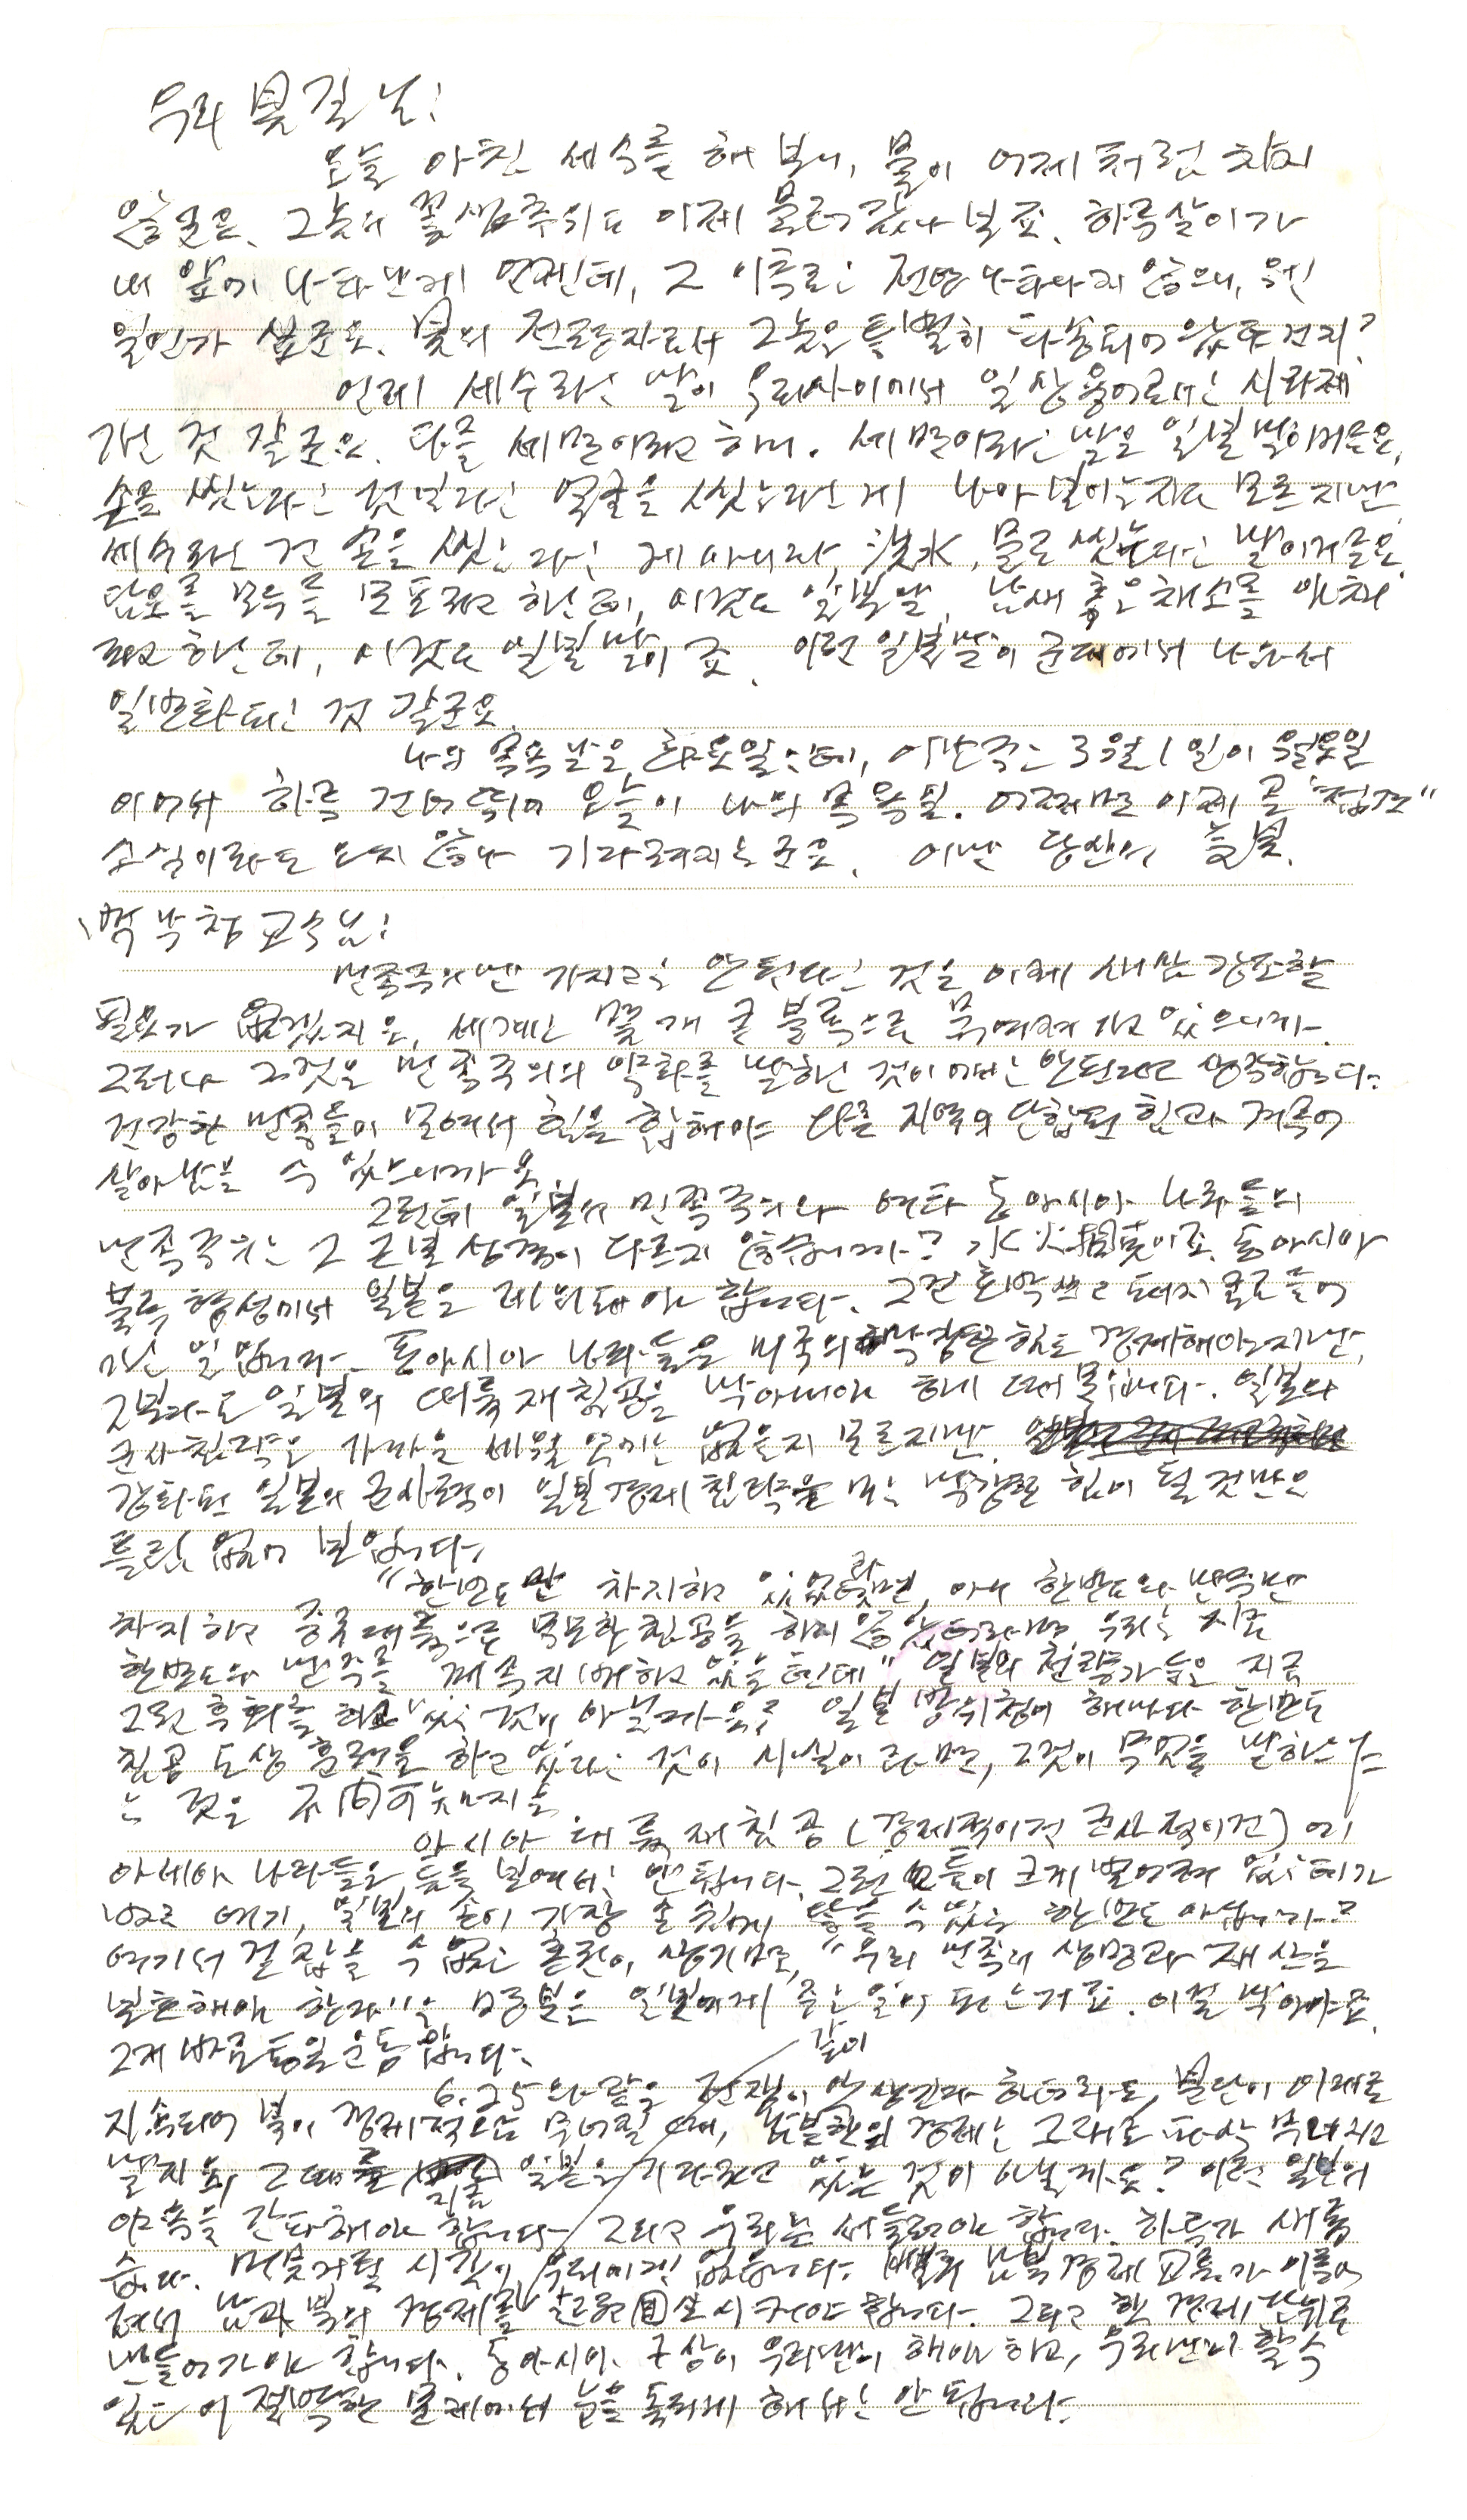 우리 봄길님:
오늘 아침 세수를 해 보니, 물이 어제처럼 차지
않군요. 그놈의 꽃샘추위도 이제 물러갔나 보죠. 하루살이가
내 앞에 나타난 게 언젠데, 그 이후로는 전연 나타나지 않으니, 웬
일인가 싶군요. 봄의 전령자로서 그놈은 특별히 파송되어 왔던 건지?
언제 세수라는 말이 우리 사이에서 일상용어로서는 사라져
가는 것 같군요. 다들 세면이라고 하며. 세면이라는 말은 일본말이거든요.
손을 씻는다는 것보다는 얼굴을 씻는다는 게 나아 보이는지도 모르지만
세수라는 건 손을 씻는다는 게 아니라, 洗水, 물로 씻는다는 말이거든요.
담요를 모두들 모포라고 하는데, 이것도 일본말, 냄새 좋은 채소를 야채
라고 하는데, 이것도 일본말이죠. 이런 일본말이 군대에서 나와서
일반화되는 것 같군요.
나의 목욕날은 화요일인데, 이번 주는 3월 1일이 월요일
이어서 하루 건너뛰어 오늘이 나의 목욕일. 어쩌면 이제 곧 "접견"
소식이라도 오지 않나 기다려지는군요. 이만 당신의 늦봄.
백낙청 교수님:
민족주의만 가지고는 안 된다는 것을 이제 새삼 강조할
필요가 없겠지요, 세계는 몇 개 큰 블록으로 묶여져 가고 있으니까.
그러나 그것은 민족주의의 약화를 말하는 것이어서는 안 된다고 생각합니다.
건강한 민족들이 모여서 힘을 합해야 다른 지역의 단합된 힘과 겨루어
살아남을 수 있으니까요.
그런데 일본의 민족주의와 여타 동아시아 나라들의
민족주의는 그 근본 성격이 다르지 않습니까? 水火相克이죠. 동아시아
블록 형성에서 일본은 제외돼야 합니다. 그건 화약 쓰고 돼지 굴로 들어
가는 일입니다. 동아시아 나라들은 미국의 막강한 힘도 경계해야 하지만,
그보다도 일본의 대륙 재침공을 막아내야 하기 때문입니다. 일본의
군사 침략은 가까운 세월 안에는 없을지 모르지만,
강화된 일본의 군사력이 일본 경제 침략을 미는 막강한 힘이 될 것만은
틀림없어 보입니다.
"한반도만 차지하고 있었더라면, 아니 한반도와 만주만
차지하고 중국 대륙으로 무모한 침공을 하지 않았더라면 우리는 지금
한반도와 만주를 계속 지배하고 있을 텐데" 일본의 전략가들은 지금
그런 후회를 하고 있는 것이 아닐까요? 일본 방위청이 해마다 한반도
침공 도상 훈련을 하고 있다는 것이 사실이라면, 그것이 무엇을 말하느냐
는 것은 不問可知이지요.
아시아 대륙 재침공(경제적이건 군사적이건)에
아세아 나라들은 틈을 보여서는 안 됩니다. 그런 틈이 크게 벌어져 있는 데가
바로 여기, 일본의 손이 가장 손쉽게 닿을 수 있는 한반도 아닙니까?
여기서 걷잡을 수 없는 혼란이 생기면, "우리 민족의 생명과 재산을
보호해야 한다"는 명분을 일본에게 주는 일이 되는 거죠. 이걸 막아야죠.
그게 바로 통일운동입니다.
6.25와 같은 전쟁이 안 생긴다 하더라도, 분단이 이대로
지속되어 북이 경제적으로 무너질 때, 남한의 경제는 그대로 폭삭 무너지고
말지요. 그때를 지금 일본은 기다리고 있는 것이 아닐까요? 이런 일본의
야욕을 간파해야 합니다. 그리고 우리는 서둘러야 합니다. 하루가 새롭
습니다. 머뭇거릴 시간이 우리에겐 없습니다. 빨리 남북 경제 교류가 이루어
져서 남과 북의 경제를 같이 回生시켜야 합니다. 그리고 한 경제 단위로
만들어가야 합니다. 동아시아 구상이 우리만이 해야 하고, 우리만이 할 수
있는 이 절박한 문제에서 눈을 돌리게 해서는 안 됩니다.